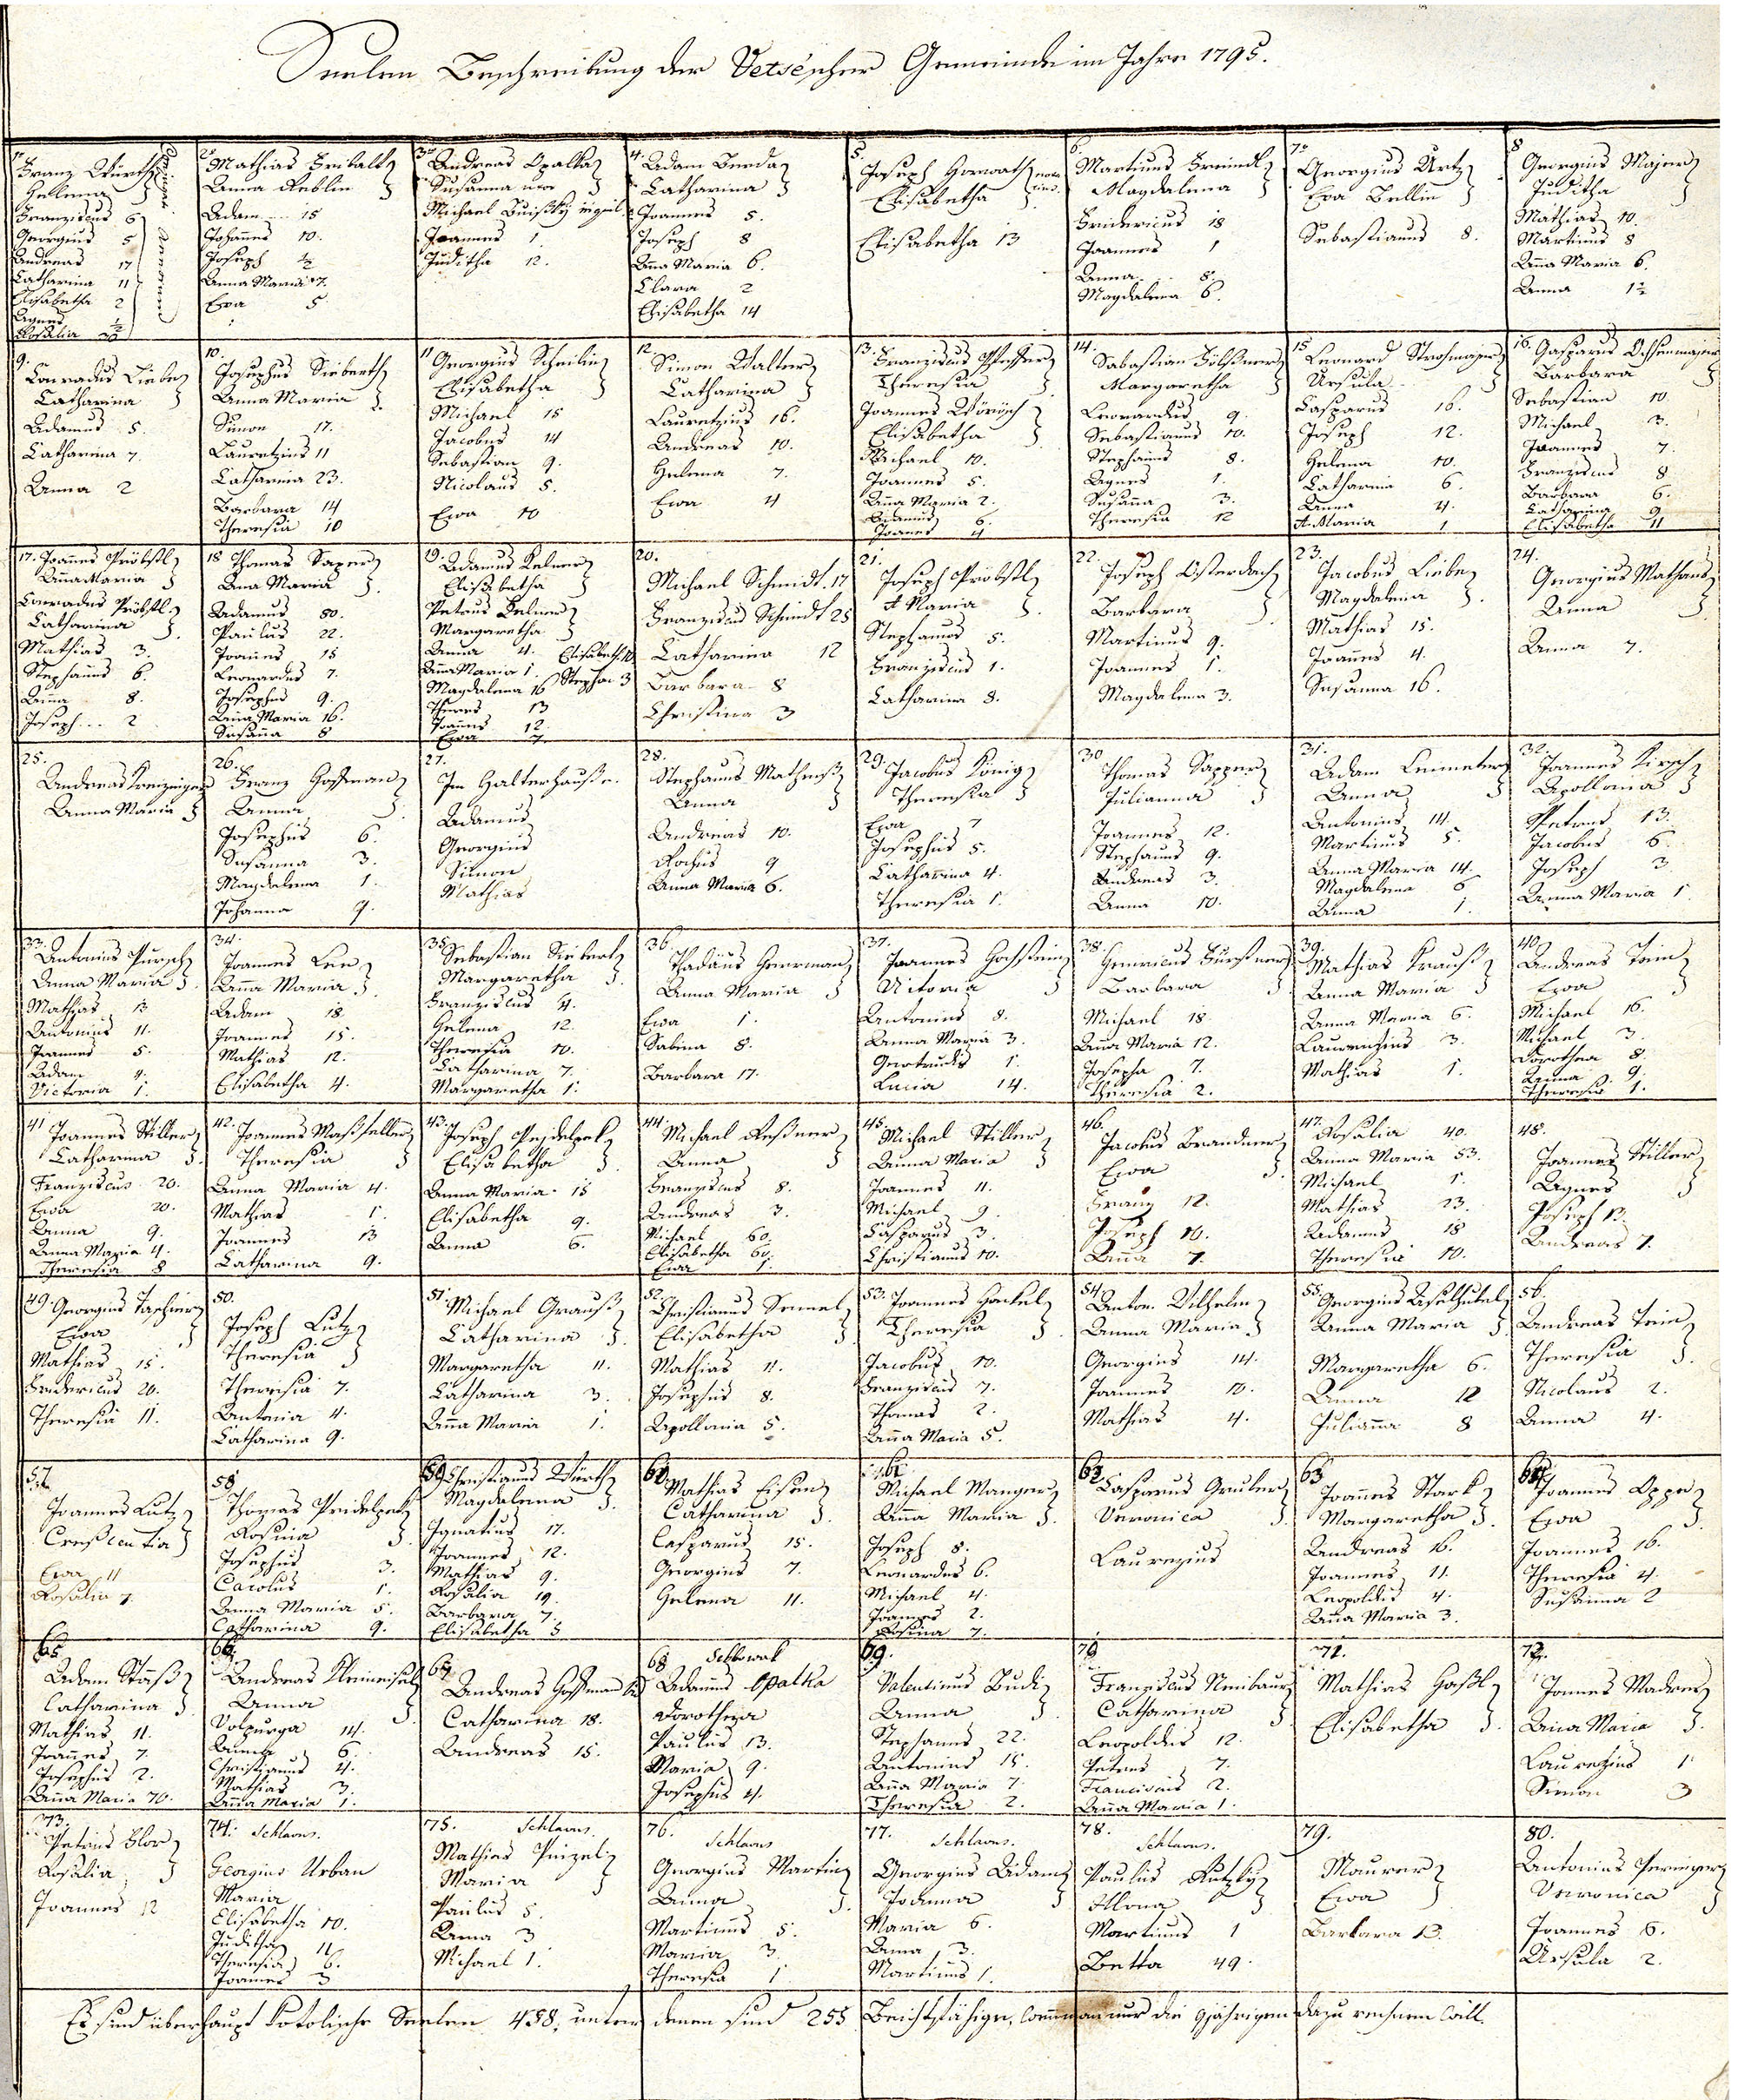 Seelen Beschreibung der Vetsescher Gemeinde im Jahre 1795.
1. Franz Würth
Hellena
Franziscus 6
Georgius 5
Andreas 17
Catharina 11
Elisabetha 2
Agnes ½
Rosalia
2. Mathias
Anna
Adam 15
Johannes 10.
Joseph ½
Anna Maria 17.
Eva 5
3. Andreas Opalka
Susanna
Michael
Joannes 1
Juditha 12.
4. Adam
Catharina
Joannes 5.
Joseph 8
Aña Maria 6.
Clara 2
Elisabetha 14
5. Joseph Horwath
Elisabetha
Elisabetha 13
6. Martinus Freindl
Magdalena
Fridericus 18
Joannes 1
Anna 8.
Magdalena 6.
7. Georgius Artz
Eva Bellin
Sebastianus 8.
8. Georgius Majer
Juditha
Mathias 10.
Martinus 8
Aña Maria 6.
Anna 1½
9. Conradus Liebe
Catharina
Adamus 5.
Catharina 7.
Anna 2
10. Josephus Sieberth
Anna Maria
Simon 17.
Lauretzius 11
Catharina 23.
Barbara 14
Theresia 10
11 Georgius Scheibin
Elisabetha
Michael 15
Jacobus 14
Sebastian 9.
Nicolaus 5.
Ewa 10
12. Simon Walter
Catharina
Lauretzius 16.
Andreas 10.
Helena 7.
Ewa 4
13. Franziscus Pfeffer
Theresia
Joannes Wörösch
Elisabetha
Michael 10.
Joannes 5.
Aña Maria 2.
Adamus 6.
Joanes 4
14. Sabastian
Margaretha
Leonardus 9.
Sebastianus 10.
Stephanus 8.
Agnes 1.
Susanna 3.
Theresia 12
15 Leonard Strohmajer
Ursula
Casparus 16.
Joseph 12.
Helena 10.
Catharina 6.
Anna 4.
A. Maria 1
16. Gasparus Ochsenmajer
Barbara
Sebastian 10.
Michael 3.
Joannes 7.
Franziscus 8
Barbara 6.
Catharina 9.
Elisabetha 11
17. Joannes Pröbstl
Aña Maria
Conradus Pröbstl
Catharina
Mathias 3.
Stephanus 6.
Aña 8.
Joseph 2
18 Thomas Saper
Ana Maria
Adamus 80.
Paulus 22.
Joannes 15
Leonardus 7.
Josephus 9.
Aña Maria 16.
Susaña 8
19. Adamus Kelner
Elisabetha
Petrus Kelner
Margaretha
Anna 4. Elisabeth
Aña Maria 1. Stephan 3
Magdalena 16
Theres 13
Joannes 12.
Ewa 7
20.
Michael Schmidt 17
Franziscus Schmidt 25
Catharina 12
Barbara 8
Christina 3
21. Joseph Pröbstl
A Maria
Stephanus 5.
Franziscus 1.
Catharina 8.
22. Joseph Osterdach
Barbara
Martinus 9.
Joannes 1.
Magdalena 3.
23. Jacobus Liebe
Magdalena
Mathias 15.
Joannes 4.
Susanna 16.
24. Georgius Mathaus
Anna
Anna 7.
25.
Andreas Kreizinger
Anna Maria
26. Franz Hoffman
Anna
Josephus 6.
Susanna 3.
Magdalena 1.
Johanna 9.
27.
Im Halterhause.
Adamus
Georgius
Simon
Mathias
28. Stephanus Matheus
Anna
Andreas 10.
Rochus 9
Anna Maria 6.
29. Jacobus König
Theresia
Ewa 7
Josephus 5.
Catharina 4.
Theresia 1.
30 Thomas Sapper
Julianna
Joannes 12.
Stephanus 9.
Andreas 3.
Anna 10.
31. Adam Lemeter
Anna
Antonius 14.
Martinus 5.
Anna Maria 14.
Magdalena 6
Anna 1.
32. Joannes Kirsch
Apollonia
Petrus 13.
Jacobus 6.
Joseph 3
Anna Maria 1
33. Antonius Pürsch
Anna Maria
Mathias 13
Antonius 11.
Joannes 5.
Adam 4.
Victoria 1.
34. Joannes Lee
Aña Maria
Adam 18.
Joannes 15.
Mathias 12.
Elisabetha 4.
35. Sebastian Siebert
Margaretha
Franziscus 4.
Helena 12.
Theresia 10.
Catharina 7.
Margaretha 1.
36. Thadäus Herrman
Anna Maria
Ewa 1.
Sabina 8.
Barbara 17.
37. Joannes Hochstein
Vitoria
Antonius 8.
Anna Maria 3.
Gertrudis 1.
Lucia 14.
38. Henricus Fürstner
Barbara
Michael 18.
Aña Maria 12.
Josepha 7.
Theresia 2.
39. Mathias Krauß
Anna Maria
Anna Maria 6.
Laurenzius 3.
Mathias 1.
40. Andreas Tein
Ewa
Michael 16.
Michael 3.
Dorothea 8.
Anna 9.
Theresia 1.
41 Joannes Stiller
Catharina
Franziscus 20.
Ewa 20.
Anna 9.
Anna Maria 4.
Theresia 8
42. Joannes Maßfeller
Theresia
Anna Maria 4.
Mathias 1.
Joannes 13
Catharina 9.
43. Joseph Pejdelpek
Elisabetha
Anna Maria 15
Elisabetha 9.
Anna 6.
44. Michael Reßner
Anna
Franziscus 8.
Andreas 3.
Michael 60.
Elisabetha 60.
Ewa 1.
45. Michael Stiller
Anna Maria
Joannes 11.
Michael 9.
Casparus 3.
Christianus 10.
46. Jacobus Brandner
Ewa
Franz 12.
Joseph 10.
Aña 7.
47. Rosalia 40.
Anna Maria 53.
Michael 1.
Mathias 23.
Adamus 18
Theresia 10.
48. Joannes Stiller
Agnes
Joseph 13.
Andreas 7.
49. Georgius Taschier
Ewa
Mathias 15.
Fridericus 20.
Theresia 11.
50. Joseph Lutz
Theresia
Theresia 7.
Antonia 4.
Catharina 9.
51. Michael Grauß
Catharina
Margaretha 11.
Catharina 3.
Aña Maria 1.
52. Christianus Semel
Elisabetha
Mathias 11.
Josephus 8.
Apollonia 5.
53. Joannes Hackel
Theresia
Jacobus 10.
Franziscus 7.
Thomas 2.
Aña Maria 5.
54. Anton. Wilhelm
Anna Maria
Georgius 14.
Joannes 10.
Mathias 4.
55. Georgius
Anna Maria
Margaretha 6.
Anna 12
Julianna 8
56. Andreas Tein
Theresia
Nicolaus 2.
Anna 4.
57. Joannes Lutz
Creßcentia
Ewa 11
Rosalia 7.
58. Thomas Peidelpek
Rosina
Josephus 3.
Carolus 1.
Anna Maria 5.
Catharina 9.
59. Christianus Würth
Magdalena
Ignatius 17.
Joannes 12.
Mathias 9.
Rosalia 19.
Barbara 7.
Elisabetha 5
60. Mathias Eisen
Catharina
Casparus 15.
Georgius 7.
Helena 11.
61. Michael Manger
Aña Maria
Joseph 8.
Leonardus 6.
Michael 4.
Joannes 2.
Rosina 7.
62. Casparus Gruber
Veronica
Lauregius
63 Joannes Stark
Margaretha
Andreas 16.
Joannes 11.
Leopoldus 4.
Aña Maria 3.
64. Joannes Oppe
Ewa
Joannes 16.
Theresia 4.
Susanna 2
65 Adam Stäß
Catharina
Mathias 11.
Joannes 7.
Josephus 2.
Aña Maria 70.
66. Andreas Kleineisel
Anna
Volpurga 14.
6.
Christianus 4.
Mathias 3.
Aña Maria 1.
67. Andreas Hoffman
Catharina 18.
Andreas 15.
68 Schlowak
Adamus Opalka
Dorothea
Paulus 13.
Maria 9.
Josephus 4.
69. Valentinus Budi
Anna
Stephanus 22.
Antonius 15.
Aña Maria 7.
Theresia 2.
70 Franziscus Neubaur
Catharina
Leopoldus 12.
Petrus 7.
Franciscus 2.
Aña Maria 1.
71. Mathias Haßl
Elisabetha
72. Joanes Madner
Aña Maria
Lauretzius 1
Simon 3
73. Petrus Flor
Rosalia
Joannes 12
74. Schlavus.
Georgius Urban
Maria
Elisabetha 10.
Juditha 11.
Theresia 6.
Joannes 3
75. Schlavus.
Mathias Puizeli
Maria
Paulus 5.
Anna 3
Michael 1.
76. Schlavus
Georgius Martin
Anna
Martinus 5.
Maria 3.
Theresia 1
77. Schlavus.
Georgius Adam
Joanna
Maria 6.
Anna 3.
Martinus 1.
78. Schlavus.
Paulus Rutzky
Ilona
Martinus 1
Betta 49.
79. Maurer
Ewa
Barbara 13.
80. Antonius Peringer
Veronica
Joannes 6.
Ursula 2.
Es sind überhaupt katolische Seelen 458, unter denen sind 255 Beichtfähige, wenn man nur die 9jährigen dazu rechnen will.